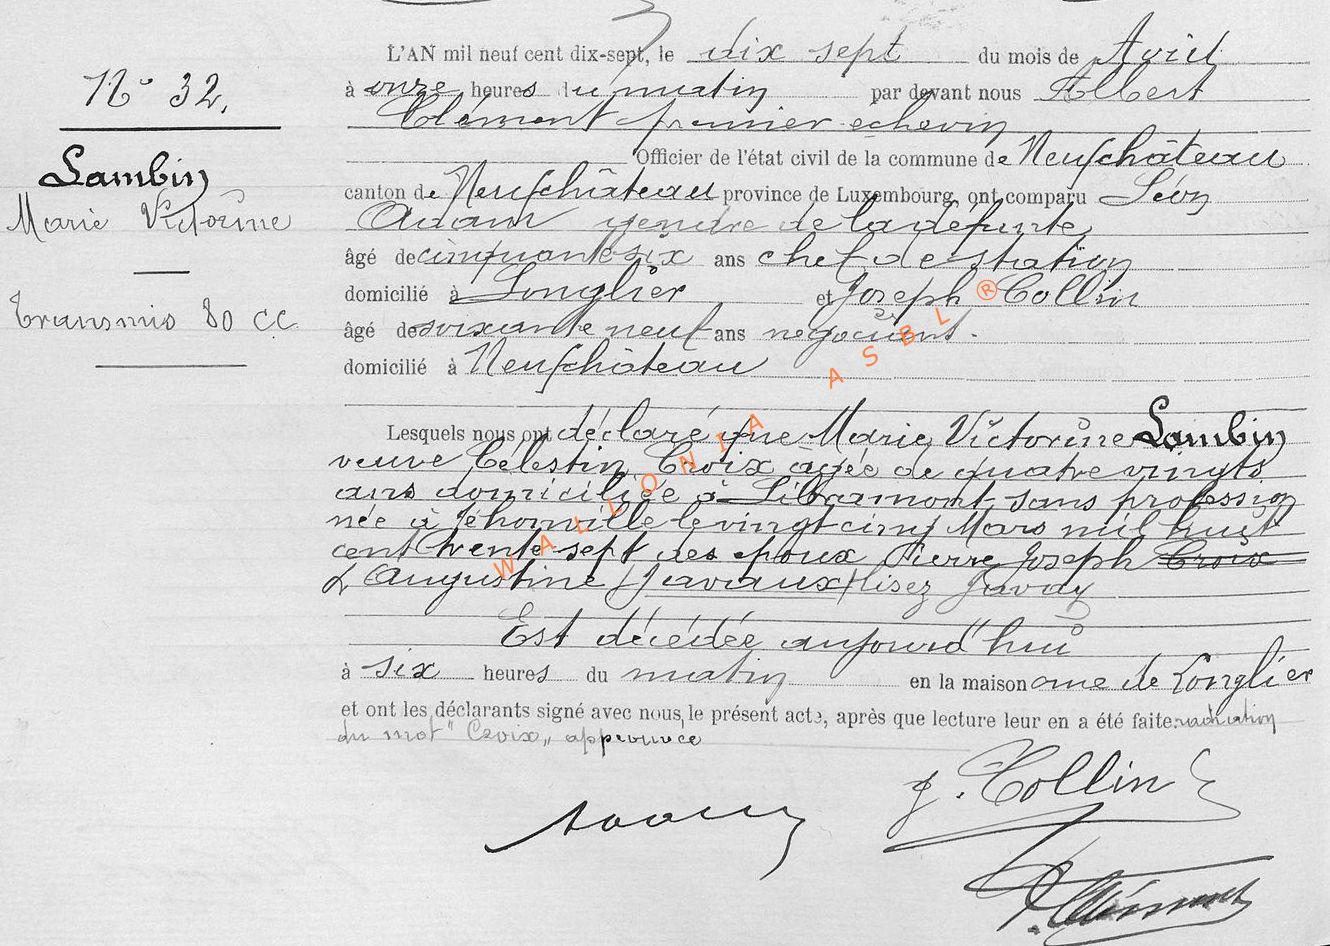 N° 32.
Lambin
Marie Victorine
Transmis 80 CC
L'AN mil neuf cent dix-sept, le dix sept du mois de Avril
à onze heures du matin par devant nous Albert
Clément premier échevin
Officier de l'état civil de la commune de Neufchâteau
canton de Neufchâteau province de Luxembourg, ont comparu Léon
Adam gendre de la défunte
âgé de cinquante six ans chef de station
domicilié à Longlier et Joseph Collin
âgé de soixante neuf ans négociant.
domicilié à Neufchâteau
Lesquels nous ont déclaré que Marie Victorine Lambin
veuve Célestin Croix âgée de quatre vingts
ans domiciliée à Libramont sans profession
née à Jéhonville le vingt cinq Mars mil huit
cent trente sept des époux Pierre Joseph Croix
& Augustine (Javiaux) lisez Javay
Est décédée aujourd'hui
à six heures du matin en la maison de Longlier
et ont les déclarants signé avec nous le présent acte, après que lecture leur en a été faite. radiation
du mot "Croix" approuvée
J. Collin
A. Clément
WALLONIA ASBL ®